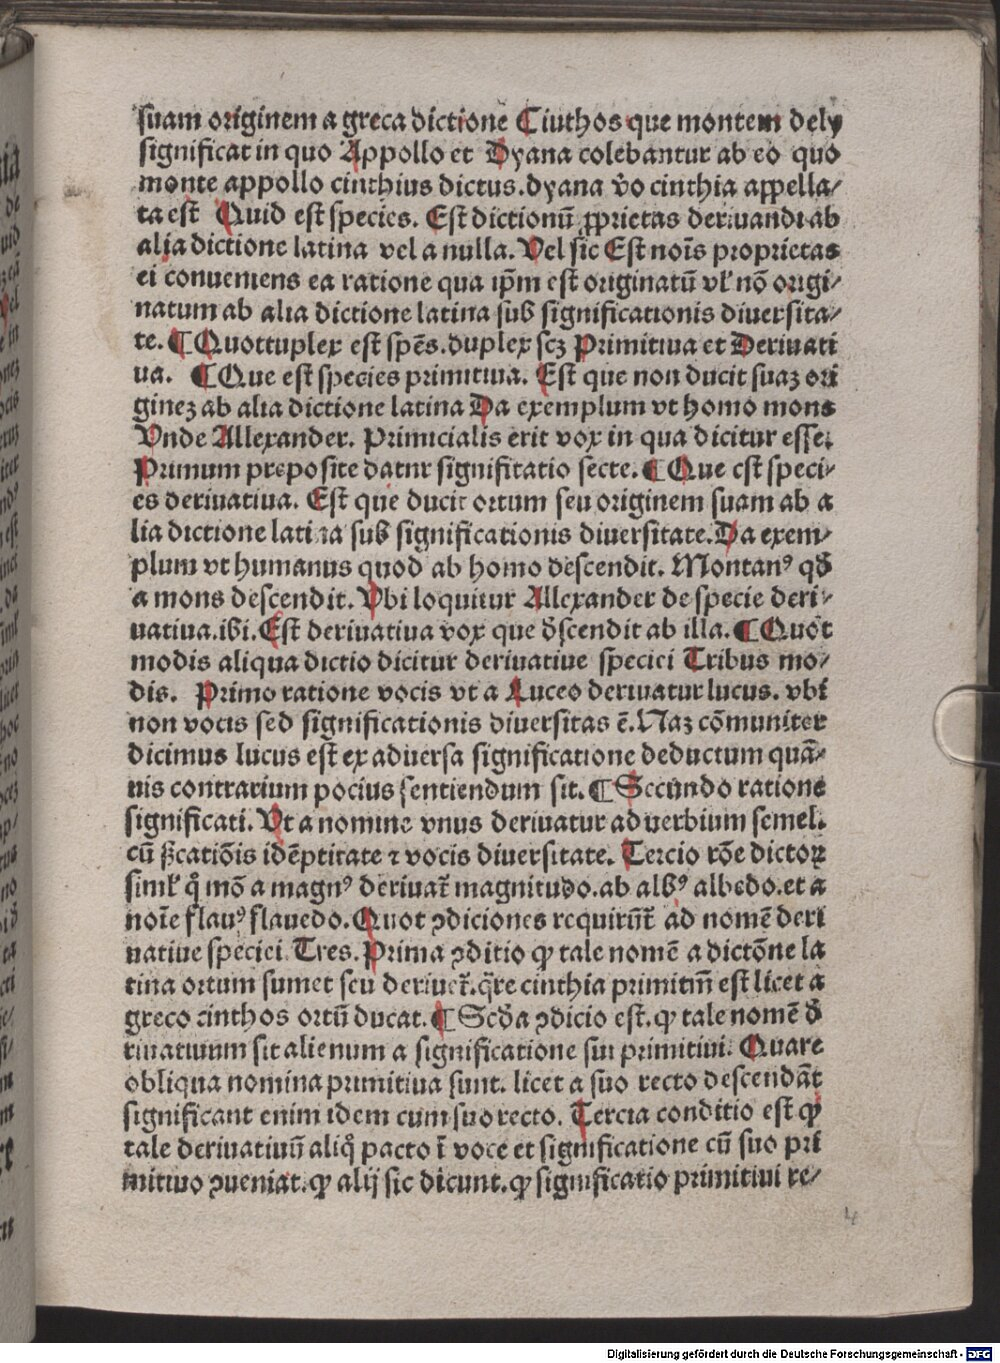 suam originem a greca dictione Ciuthos que montem dely
significat in quo Appollo et Dyana colebantur ab eo quo
monte appollo cinthius dictus.dyana v̄o cinthia appella/
ta est Quid est species. Est dictionū ꝓprietas deriuandi ab
alia dictione latina vel a nulla. Vel sic Est noīs proprietas
ei conueniens ea ratione qua ip̄m est originatū vƚ nō origi/
natum ab alia dictione latina sub significationis diuersita/
te. ¶ Quottuplex est spēs.duplex scꝫ Primitiua et Deriuati
ua. ¶ Que est species primitiua. Est que non ducit suaꝫ ori
gineꝫ ab alia dictione latina Da exemplum vt homo mons
Vnde Allexander. Primicialis erit vox in qua dicitur esse.
Primum preposite datnr signifitatio secte. ¶ Que cst speci/
es deriuatiua. Est que ducit ortum seu originem suam ab a
lia dictione latina sub significationis diuersitate. Da exem/
plum vt humanus quod ab homo descendit. Montanꝰ qđ
a mons descendit. Vbi loquitur Allexander de specie deri/
uatiua.ibi.Est deriuatiua vox que đscendit ab illa. ¶ Quot
modis aliqua dictio dicitur deriuatiue speciei Tribus mo/
dis. Primo ratione vocis vt a Luceo deriuatur lucus. vbi
non vocis sed significationis diuersitas ē. Naꝫ cōmuniter
dicimus lucus est ex aduersa significatione deductum quā/
uis contrarium pocius sentiendum sit. ¶ Secundo ratione
significati. Vt a nomine vnus deriuatur aduerbium semel.
cū ẜcatiōis idēptitate ⁊ vocis diuersitate. Tercio rōe dictoꝝ
simƚ qͥ mō a magnꝰ deriuat̄ magnitudo.ab albꝰ albedo.et a
noīe flauꝰ flauedo. Quot ꝯdiciones requirūt̄ ad nomē deri
uatiue speciei. Tres. Prima ꝯditio ꝙ tale nomē a dictōne la
tina ortum sumet seu deriuet̄.q̄re cinthia primitiū est licet a
greco cinthos ortū ducat. ¶ Scđa ꝯdicio est.ꝙ tale nomē đ
riuatiuum sit alienum a significatione sui primitiui. Quare
obliqua nomina primitiua sunt. licet a suo recto descendāt
significant enim idem cum suo recto. Tercia conditio est ꝙ
tale deriuatiuū aliqͦ pacto ī voce et significatione cū suo pri
mitiuo ꝯueniat.ꝙ alij sic dicunt.ꝙ significatio primitiui re/
4
Digitalisierung gefördert durch die Deutsche Forschungsgemeinschaft - DFG